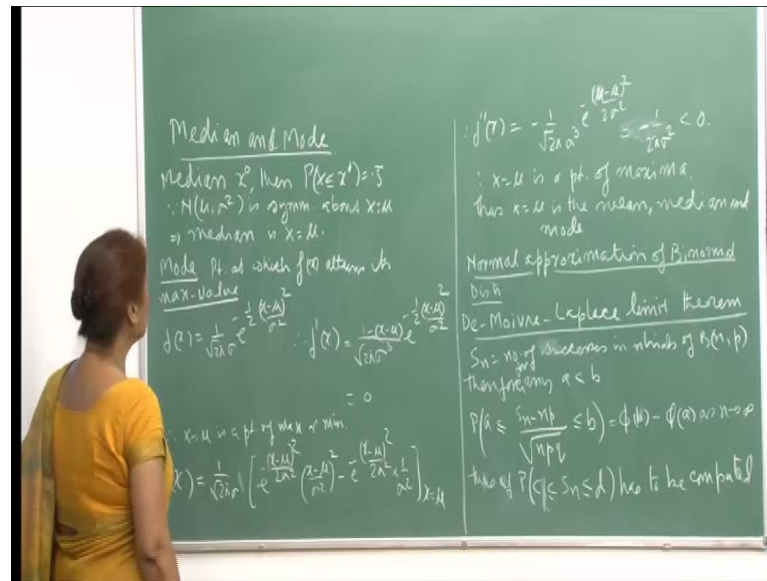 Median and Mode
Median x⁰, then P(X ≤ x⁰) = .5
∵ N(μ, σ²) is symm. about x=μ
⇒ median is x=μ.
Mode Pt. at which f(x) attains its
max-value
f(x) = 1/(√2π σ) e^{-1/2 (x-μ)²/σ²} ∴ f'(x) = -(x-μ)/(√2π σ³) e^{-1/2 (x-μ)²/σ²}
= 0
∴ x=μ is a pt of max or min.
(x) = 1/(√2π σ³) [e^{-(x-μ)²/2σ²} (x-μ)²/σ² - e^{-(x-μ)²/2σ²} × 1/σ²]_{x=μ}
∴ f''(x) = -1/(√2π σ³) e^{-(μ-μ)²/2σ²} = -1/(√2π σ²) < 0.
∴ x=μ is a pt. of maxima.
Thus x=μ is the mean, median and
mode
Normal approximation of Binomial
Dist
De-Moivre-Laplace limit theorem
Sn = no. of successes in n trials of B(n, p)
then for any a < b
P(a ≤ (Sn - np)/√npq ≤ b) = φ(b) - φ(a) as n→∞
P(c ≤ Sn ≤ d) has to be computed